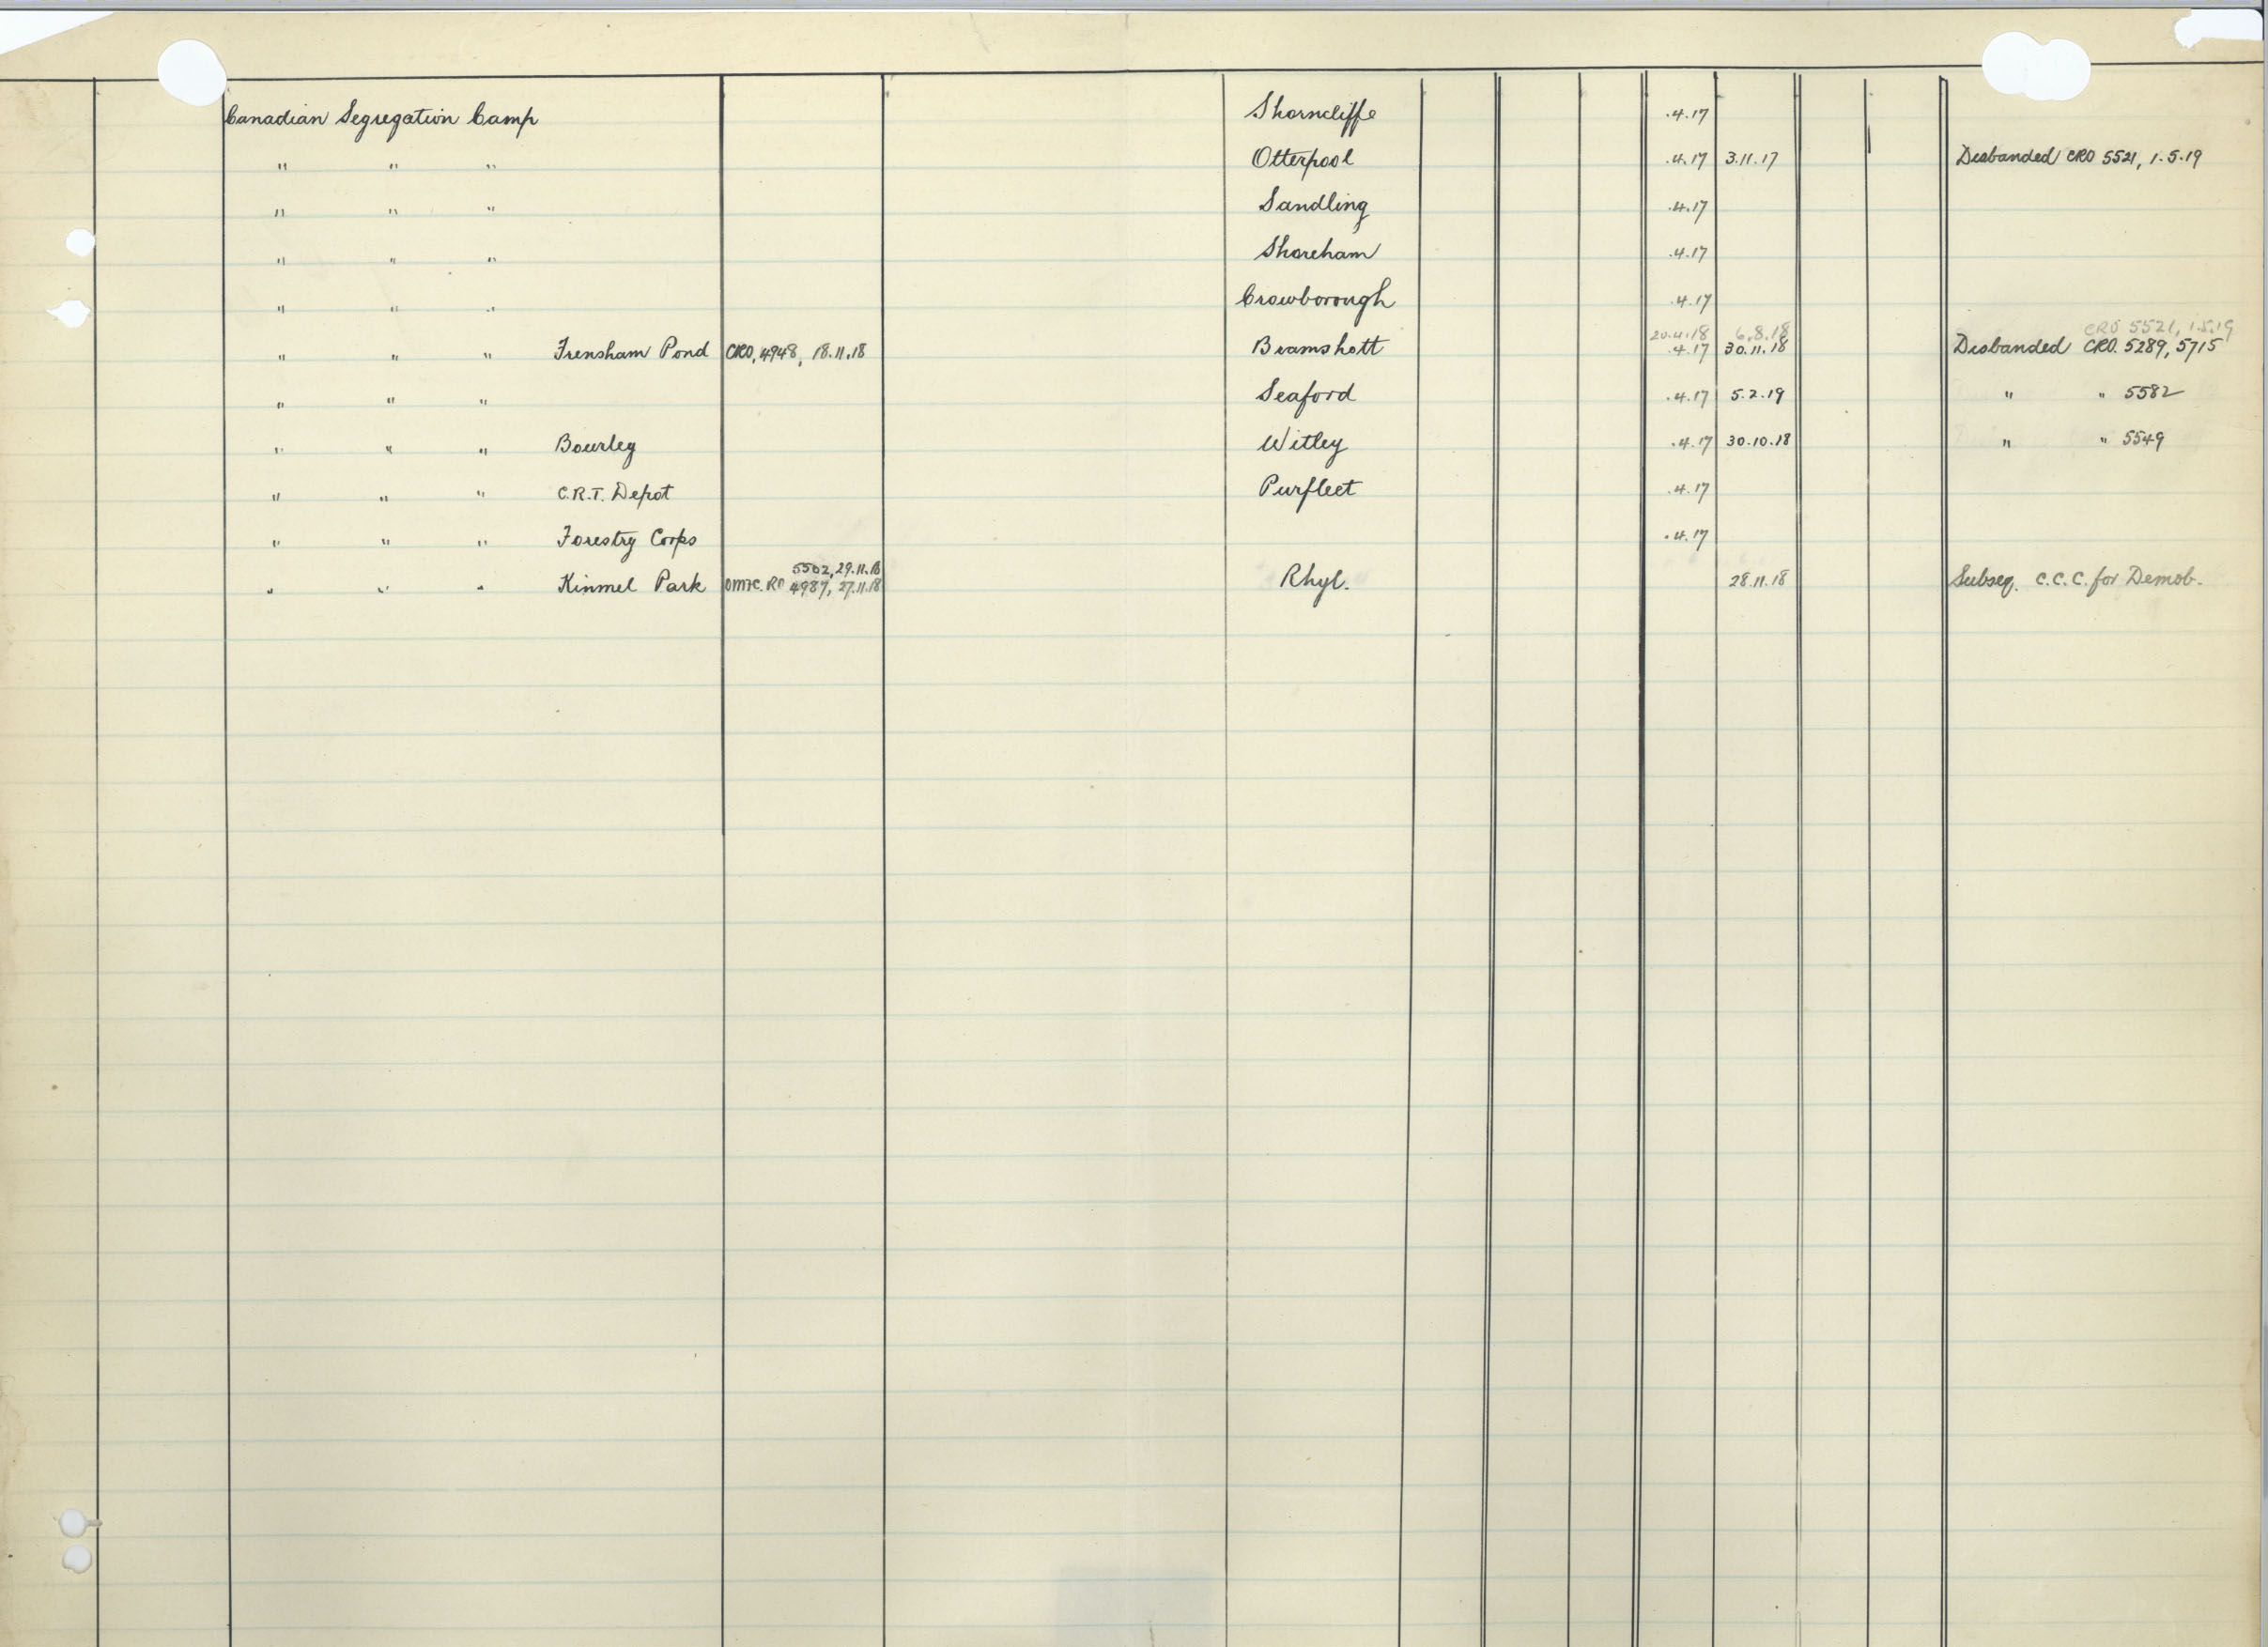 Canadian Segregation Camp Shorncliffe .4.17
" " " Otterpool .4.17 3.11.17 Disbanded CRO 5521, 1.5.19
" " " Sandling .4.17
" " " Shoreham .4.17
" " " Crowborough .4.17
20.4.18 6.8.18 CRO 5521, 1.5.19
" " " Frensham Pond CRO, 4948, 18.11.18 Bramshott .4.17 30.11.18 Disbanded CRO. 5289, 5715
" " " Seaford .4.17 5.2.19 " " 5582
" " " Bourley Witley .4.17 30.10.18 " " 5549
" " " C.R.T. Depot Purfleet .4.17
" " " Forestry Corps .4.17
5502, 29.11.18
" " " Kinmel Park OMFC. RO 4987, 27.11.18 Rhyl. 28.11.18 Subseq. C.C.C. for Demob.